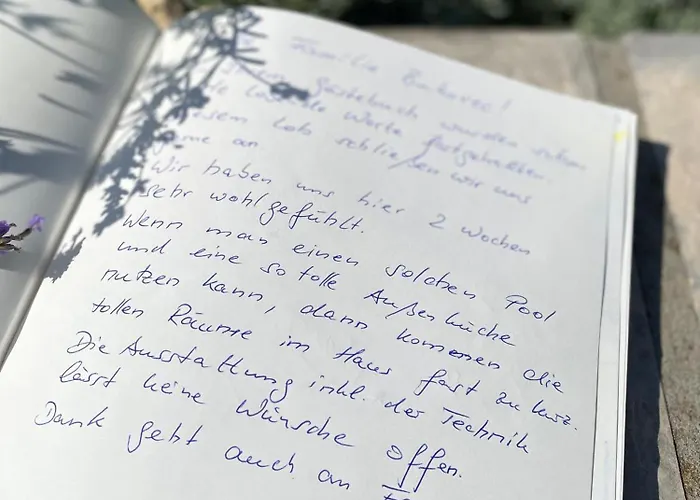 Familie
Gästebuch wurden schon
lobende Worte festgehalten.
diesem Lob schließen wir uns
gerne an.
Wir haben uns hier 2 Wochen
sehr wohlgefühlt.
Wenn man einen solchen Pool
und eine so tolle Außenküche
nutzen kann, dann kommen die
tollen Räume im Haus fast zu kurz.
Die Ausstattung inkl. der Technik
lässt keine Wünsche offen.
Dank geht auch an